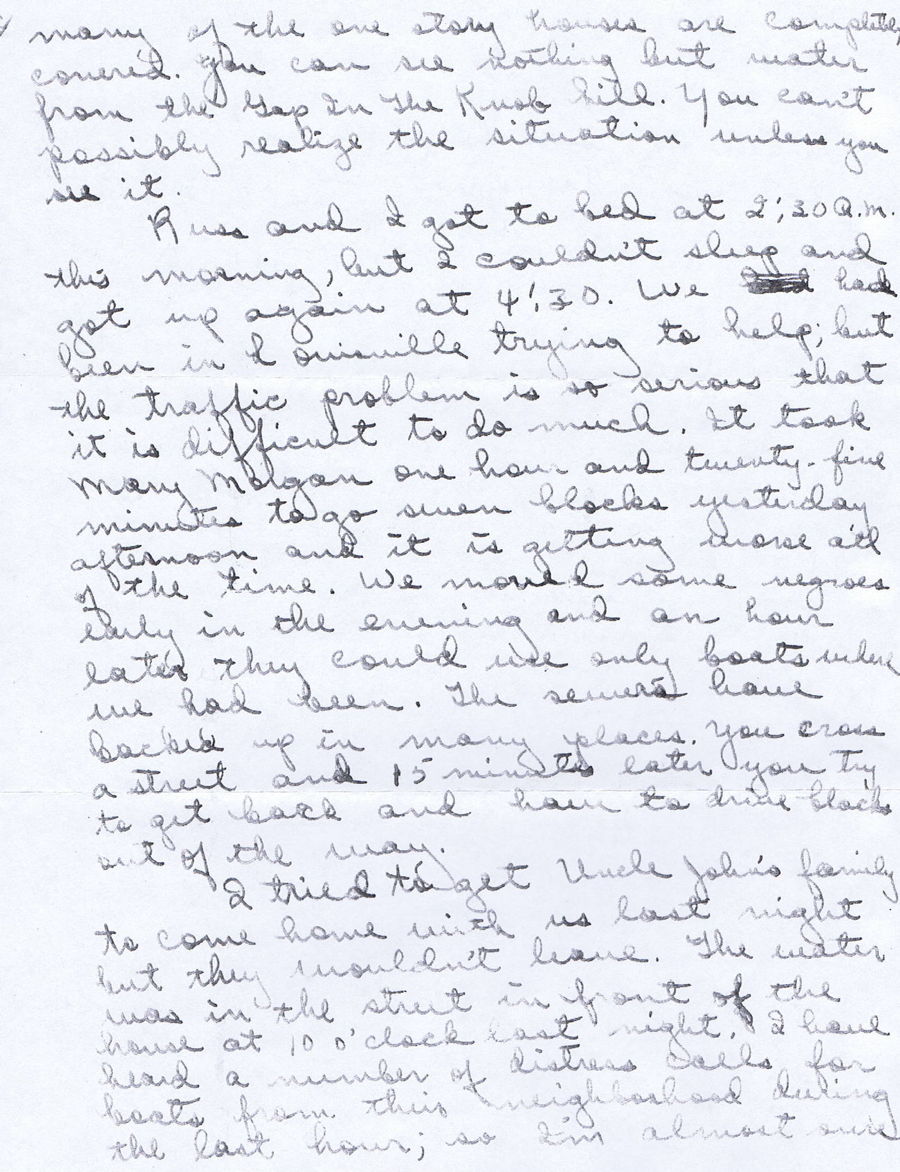 many of the one story houses are completely
covered. You can see nothing but water
from the Gap In The Knob hill. You can't
possibly realize the situation unless you
see it.
Russ and I got to bed at 2:30 A.M.
this morning, but I couldn't sleep and
got up again at 4:30. We had
been in Louisville trying to help; but
the traffic problem is so serious that
it is difficult to do much. It took
Mary Morgan one hour and twenty-five
minutes to go seven blocks yesterday
afternoon and it is getting worse all
of the time. We moved some negroes
early in the evening and an hour
later they could use only boats where
we had been. The sewers have
backed up in many places. You cross
a street and 15 minutes later you try
to get back and have to drive blocks
out of the way.
I tried to get Uncle John's family
to come home with us last night
but they wouldn't leave. The water
was in the street in front of the
house at 10 o'clock last night. I have
heard a number of distress calls for
boats from their neighborhood during
the last hour; so I'm almost sure